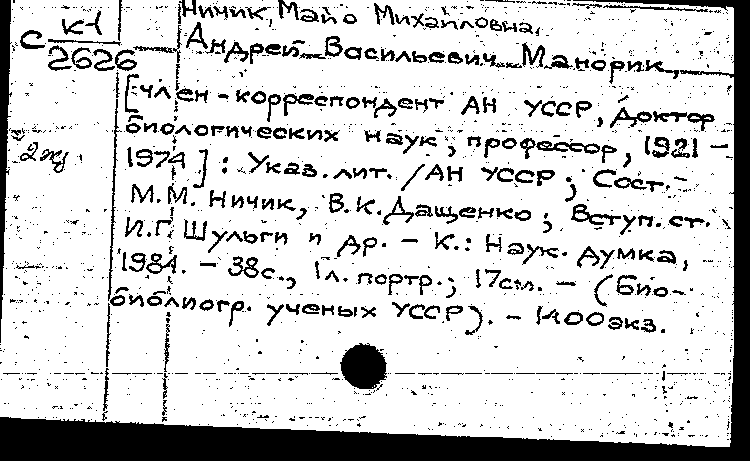 Ничик, Майо Михайловна,
С К-1
2626
Андрей Васильевич Манорик,
[член-корреспондент АН УССР, доктор
биологических наук, профессор, 1921 –
2 экз.
1974] : Указ. лит. / АН УССР ; Сост. –
М.М. Ничик, В.К. Дащенко ; Вступ. ст.
И.Г. Шульги и др. – К.: Наук. думка,
1984. – 38с., 1л. портр.; 17см. – (Био-
библиогр. ученых УССР). – 1400экз.